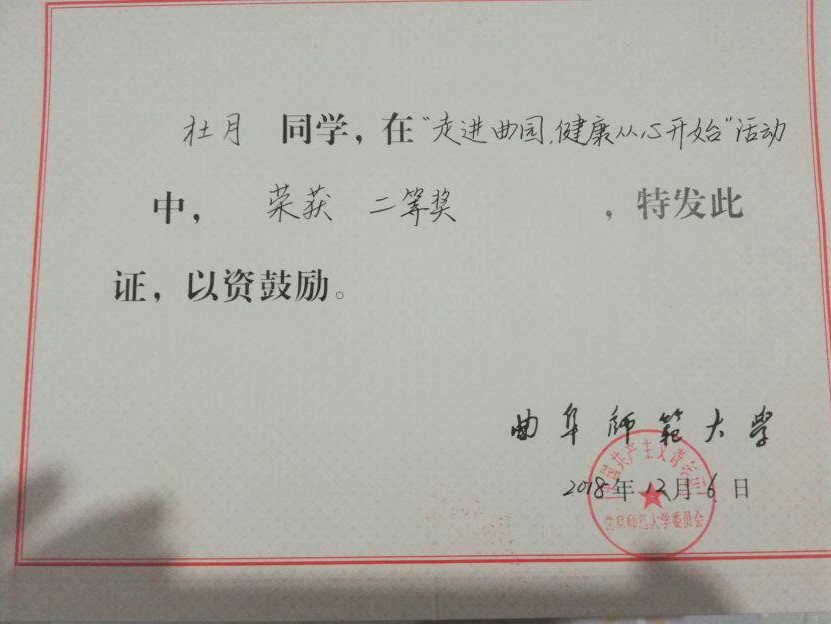 杜月 同学，在“走进曲园，健康从心开始”活动
中， 荣获 二等奖 ，特发此
证，以资鼓励。
曲阜师范大学
2018年12月6日
中国共产主义青年团
曲阜师范大学委员会